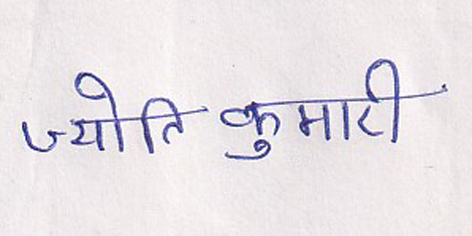 ज्योति कुमारी